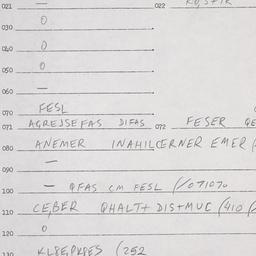 021 — 022
030 0
040 0
050 0
060 —
070 FESL
071 AGREJSEFAS DIFAS 072 FESER
080 ANEMER INAHILCERNER EMER
090 —
100 — QFAS CM FESL (/071070
110 CEBER QHALT+ DIS+MUC (410
120 0
130 (252